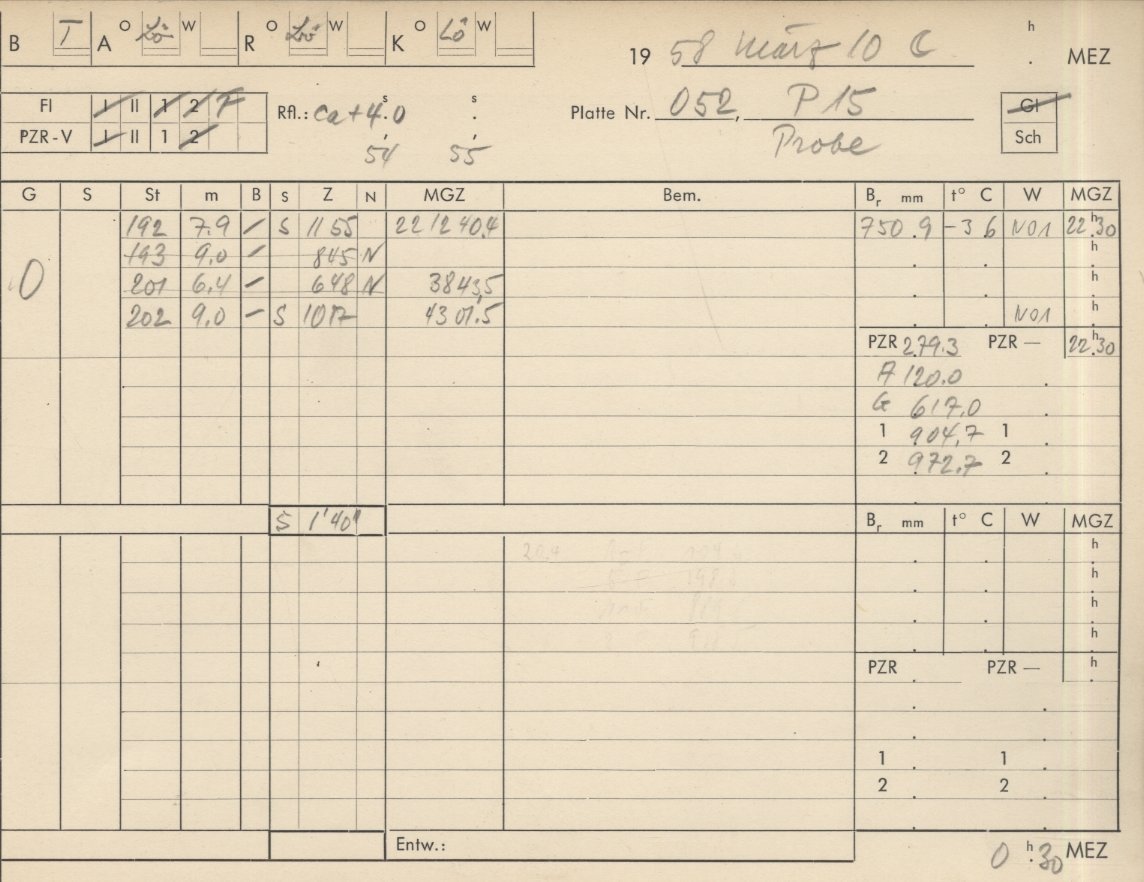 B T A O Lö W R O Lö W K O Lö W
19 58 März 10 C h . MEZ
Fl I II 1 2 F Rfl.: ca + 4.0 s s Platte Nr. 052, P 15 Gl
PZR-V I II 1 2 54 55 Probe Sch
G S St m B S Z N MGZ Bem. Br mm t° C W MGZ
192 7.9 / S 1155 22 12 40,4 750.9 -3 6 NO1 22 h 30
0 193 9.0 / 845 N h
201 6.4 / 648 N 3843,5 h
202 9.0 - S 1017 4301.5 NO1 h
PZR 279.3 PZR — 22 h 30
F 120.0
G 617.0
1 904,7 1
2 972,7 2
S 1'40" Br mm t° C W MGZ
20,4 h
h
h
h
PZR PZR — h
1 1
2 2
Entw.: 0 h 30 MEZ